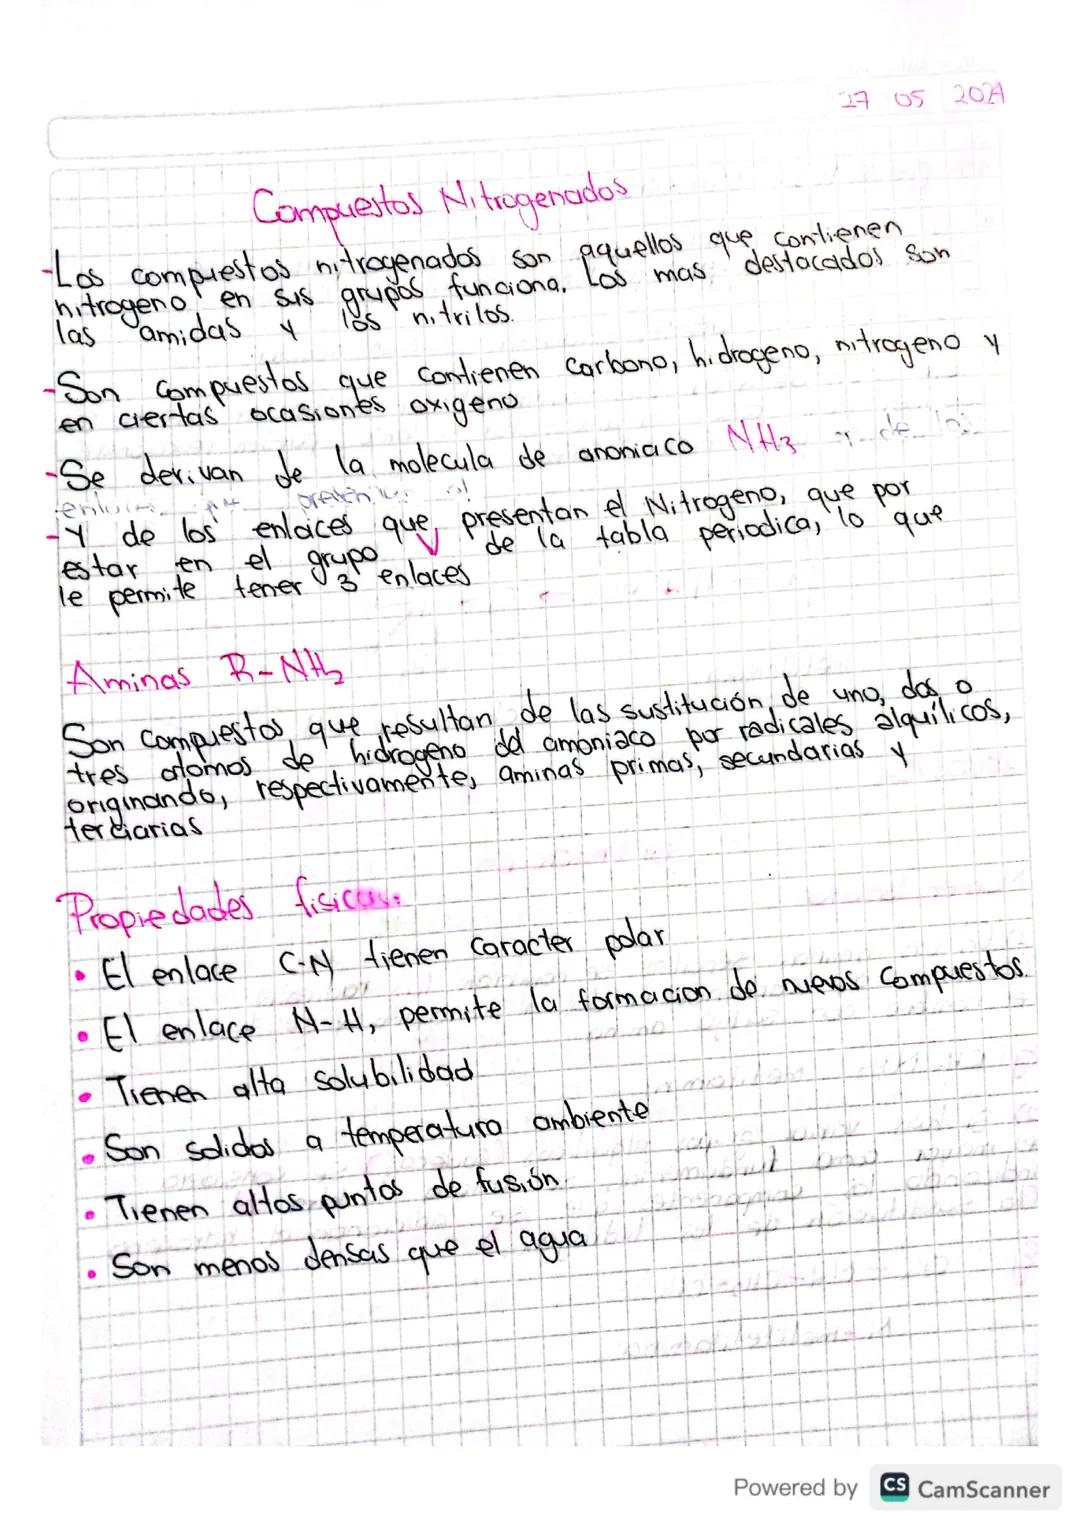 27 05 2024
Compuestos Nitrogenados
-Los compuestos nitrogenados son aquellos que contienen
nitrogeno en sus grupos funciona. Los mas destacados son
las amidas y los nitrilos.
-Son compuestos que contienen carbono, hidrogeno, nitrogeno y
en ciertas ocasiones oxigeno
-Se derivan de la molecula de anoniaco NH3 y de los
-Y de los enlaces que presentan el Nitrogeno, que por
estar en el grupo V de la tabla periodica, lo que
le permite tener 3 enlaces
Aminas R-NH2
Son compuestos que resultan de las sustitución de uno, dos o
tres atomos de hidrogeno del amoniaco por radicales alquílicos,
originando, respectivamente, aminas primas, secundarias y
terciarias
Propiedades fisicas:
• El enlace C-N tienen caracter polar
• El enlace N-H, permite la formacion de nuevos compuestos.
• Tienen alta solubilidad
• Son solidos a temperatura ambiente
• Tienen altos puntos de fusión.
• Son menos densas que el agua
Powered by CS CamScanner